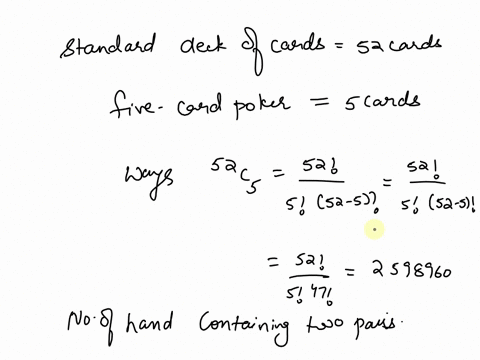 Standard deck of cards = 52 cards
five-card poker = 5 cards
Ways 52C5 = 52! / 5! (52-5)! = 52! / 5! (52-5)!
= 52! / 5! 47! = 2598960
No. of hand containing two pairs.